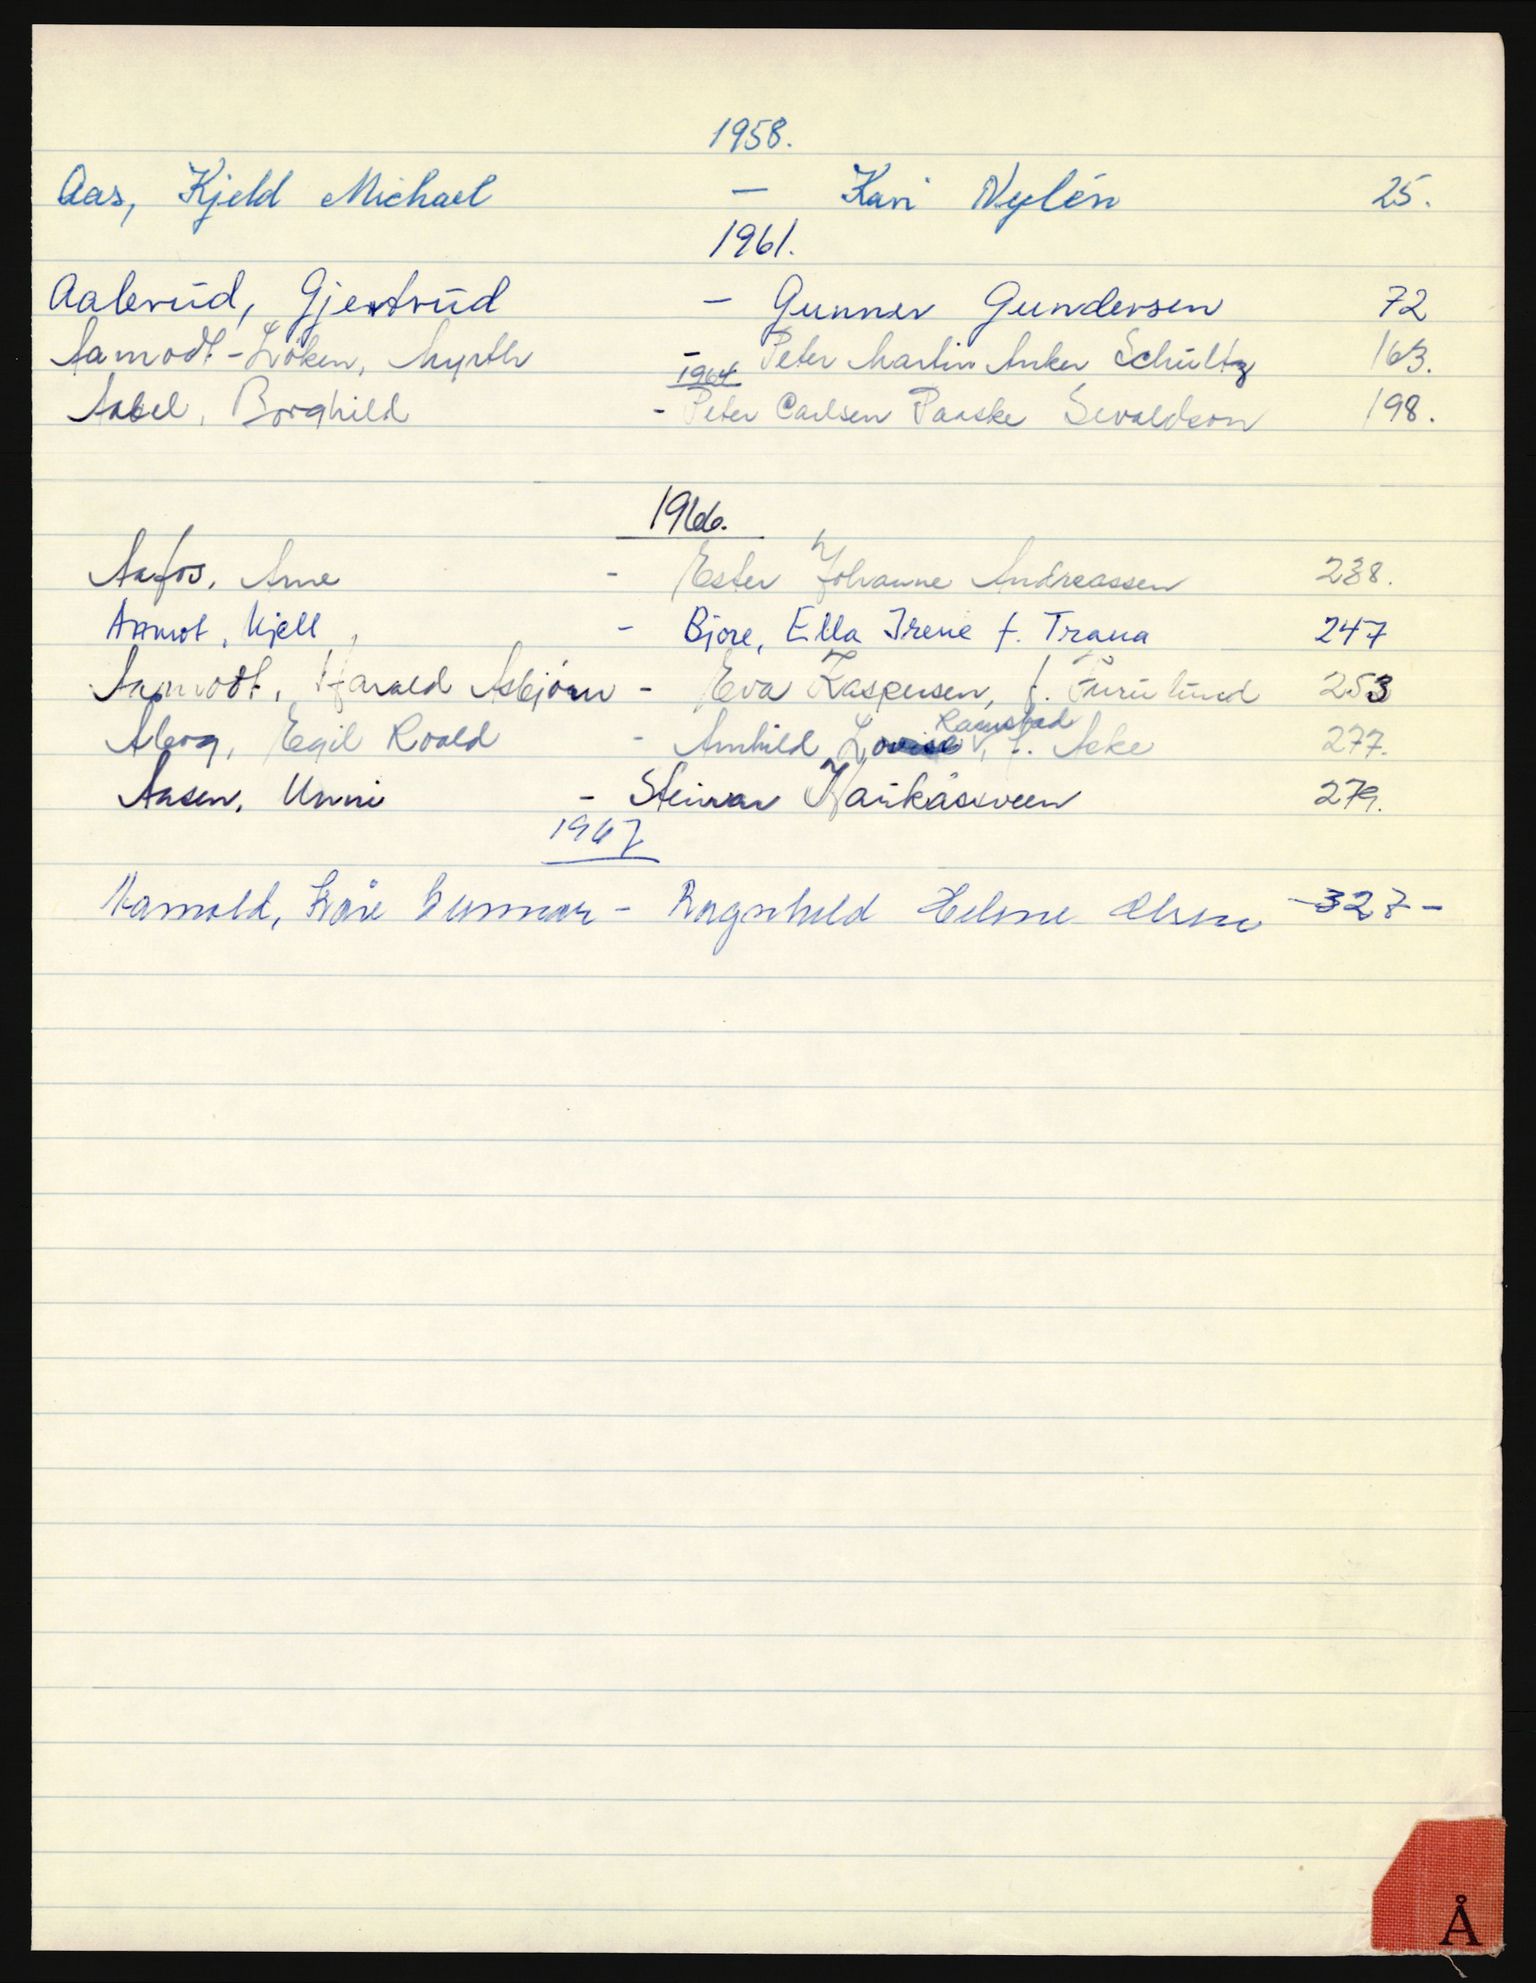 1958.
Aas, Kjeld Michael — Kari Nylén 25.
1961.
Aalerud, Gjertrud — Gunner Gundersen 72
Aamodt-Löken, Myrth - Peter Martin Anker Schültz 163.
1964
Aabel, Borghild - Peter Carlsen Paaske Sevaldson 198.
1966.
Aafos, Arne - Ester Johanne Andreassen 238.
Aamot, Kjell - Bjore, Ella Irene f. Trana 247
Aamodt, Harald Asbjörn - Eva Kaspersen, f. Furulund 253
Ramstad
Aberg, Egil Roald - Arnhild Lovise, f. Aske 277.
Aasen, Unni - Steinar Haukåsveen 279.
1967
Kåre Gunnar - Ragnhild Helene Olsen - 327 -
Å